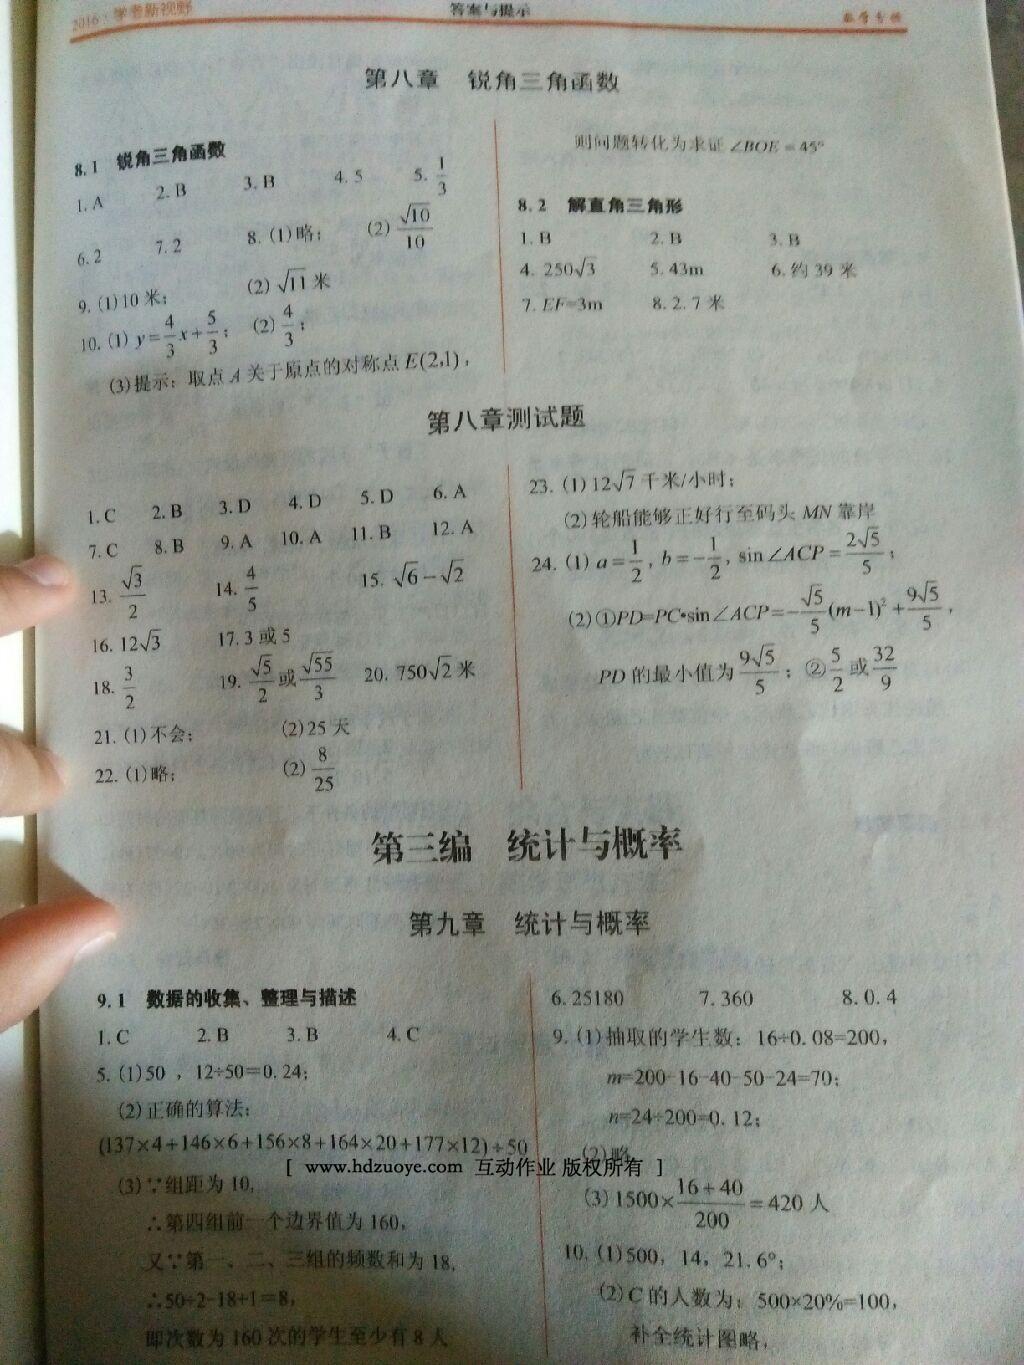 2016·学考新视野
答案与提示
数学专榜
第八章 锐角三角函数
8.1 锐角三角函数
1.A 2.B 3.B 4.5 5.1/3
6.2 7.2 8.(1)略; (2)√10/10
9.(1)10米; (2)√11米
10.(1) y=4/3x+5/3; (2)4/3;
(3)提示: 取点A关于原点的对称点E(2,1),
则问题转化为求证∠BOE=45°
8.2 解直角三角形
1.B 2.B 3.B
4.250√3 5.43m 6.约39米
7.EF=3m 8.2.7米
第八章测试题
1.C 2.B 3.D 4.D 5.D 6.A
7.C 8.B 9.A 10.A 11.B 12.A
13.√3/2 14.4/5 15.√6-√2
16.12√3 17.3或5
18.3/2 19.√5/2或√55/3 20.750√2米
21.(1)不会; (2)25天
22.(1)略; (2)8/25
23.(1)12√7千米/小时;
(2)轮船能够正好行至码头MN靠岸
24.(1) a=1/2, b=-1/2, sin∠ACP=2√5/5;
(2)①PD=PC•sin∠ACP=-√5/5(m-1)²+9√5/5,
PD的最小值为9√5/5; ②5/2或32/9
第三编 统计与概率
第九章 统计与概率
9.1 数据的收集、整理与描述
1.C 2.B 3.B 4.C
5.(1)50 , 12÷50=0.24;
(2)正确的算法:
(137×4+146×6+156×8+164×20+177×12)÷50
(3)∵组距为10,
∴第四组前一个边界值为160,
又∵第一、二、三组的频数和为18,
∴50÷2-18+1=8,
即次数为160次的学生至少有8人
6.25180 7.360 8.0.4
9.(1)抽取的学生数: 16÷0.08=200,
m=200-16-40-50-24=70;
n=24÷200=0.12;
(2)略
(3)1500×(16+40)/200=420人
10.(1)500, 14, 21.6°;
(2)C的人数为: 500×20%=100,
补全统计图略,
[ www.hdzuoye.com 互动作业 版权所有 ]